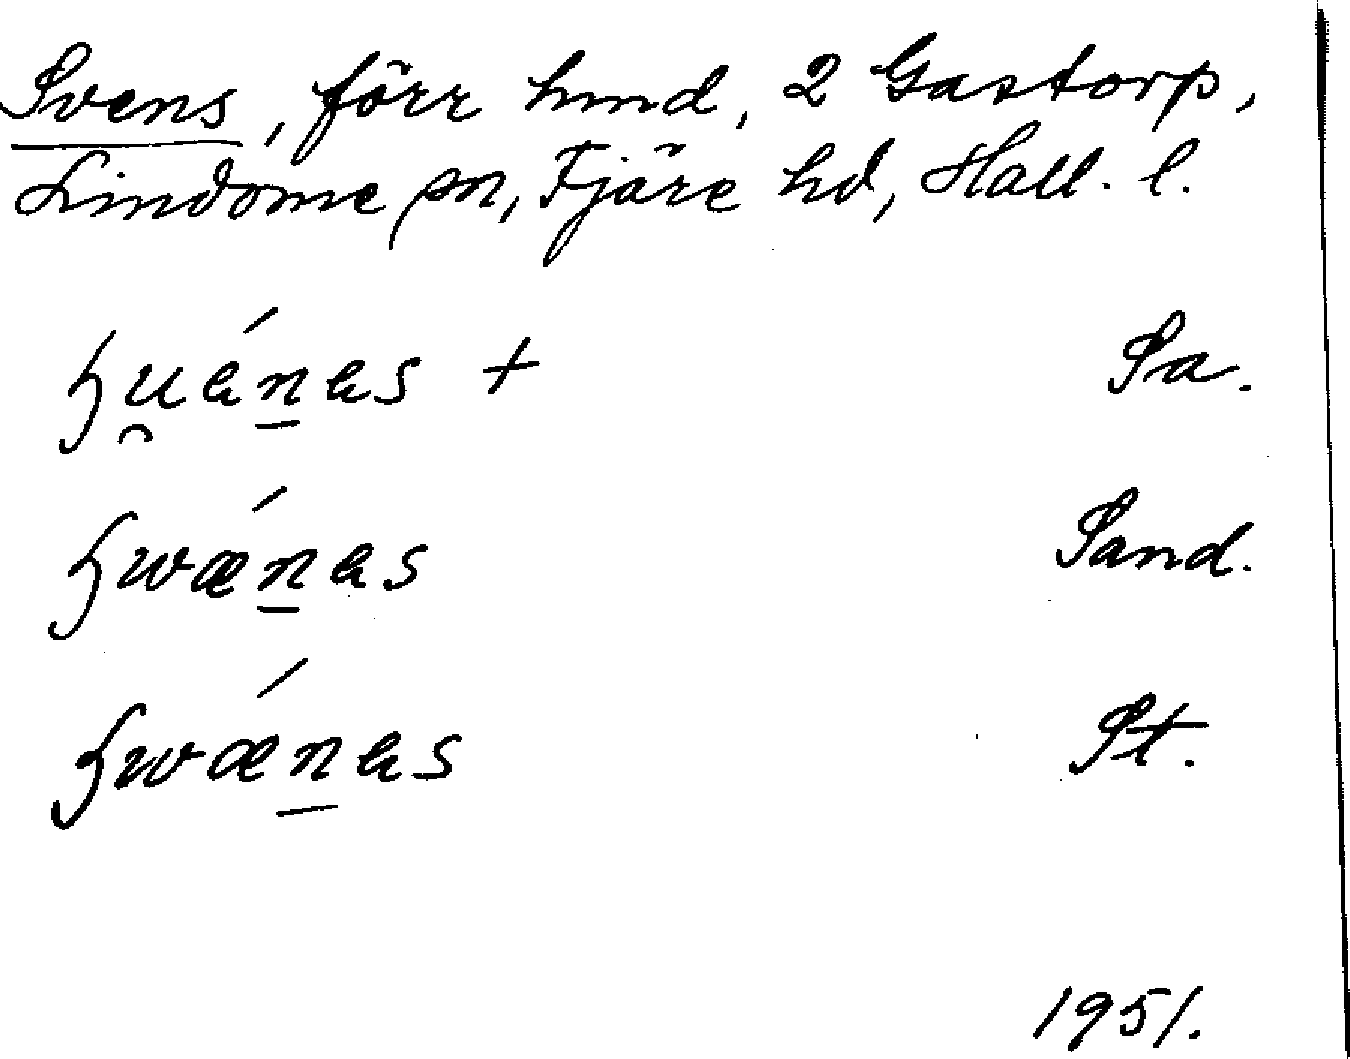 Svens, förr hmd, 2 Gastorp,
Lindome sn, Fjäre hd, Hall. l.
+ Sa.
Sand.
St.
1951.